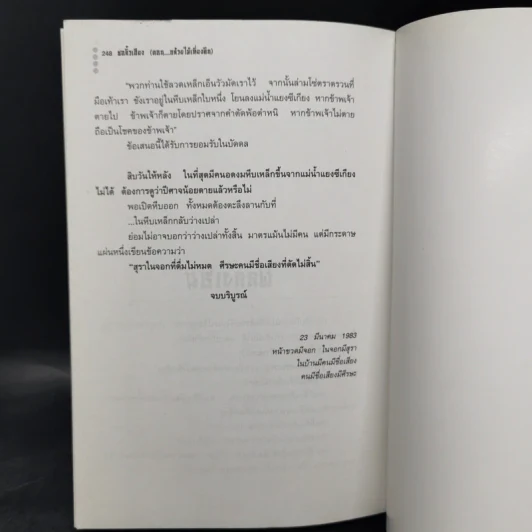 248 ชอลิ้วเฮียง (ตอน...
"พวกท่านใช้ลวดเหล็กเอ็นวัวมัดเราไว้ จากนั้นล่ามโซ่ตราตรวนที่
มือเท้าเรา ขังเราอยู่ในหีบเหล็กใบหนึ่ง โยนลงแม่น้ำแยงซีเกียง หากข้าพเจ้า
ตายไป ข้าพเจ้าก็ตายโดยปราศจากคำตัดพ้อตำหนิ หากข้าพเจ้าไม่ตาย
ถือเป็นโชคของข้าพเจ้า"
ข้อเสนอนี้ได้รับการยอมรับในบัดดล
สิบวันให้หลัง ในที่สุดมีคนอดงมหีบเหล็กขึ้นจากแม่น้ำแยงซีเกียง
ไม่ได้ ต้องการดูว่าปีศาจน้อยตายแล้วหรือไม่
พอเปิดหีบออก ทั้งหมดต้องตะลึงลานกับที่
...ในหีบเหล็กกลับว่างเปล่า
ย่อมไม่อาจบอกว่าว่างเปล่าทั้งสิ้น มาตรแม้นไม่มีคน แต่มีกระดาษ
แผ่นหนึ่งเขียนข้อความว่า
"สุราในจอกที่ดื่มไม่หมด ศีรษะคนมีชื่อเสียงที่ตัดไม่สิ้น"
จบบริบูรณ์
23 มีนาคม 1983
หน้าขวดมีจอก ในจอกมีสุรา
ในบ้านมีคนมีชื่อเสียง
คนมีชื่อเสียงมีศีรษะ